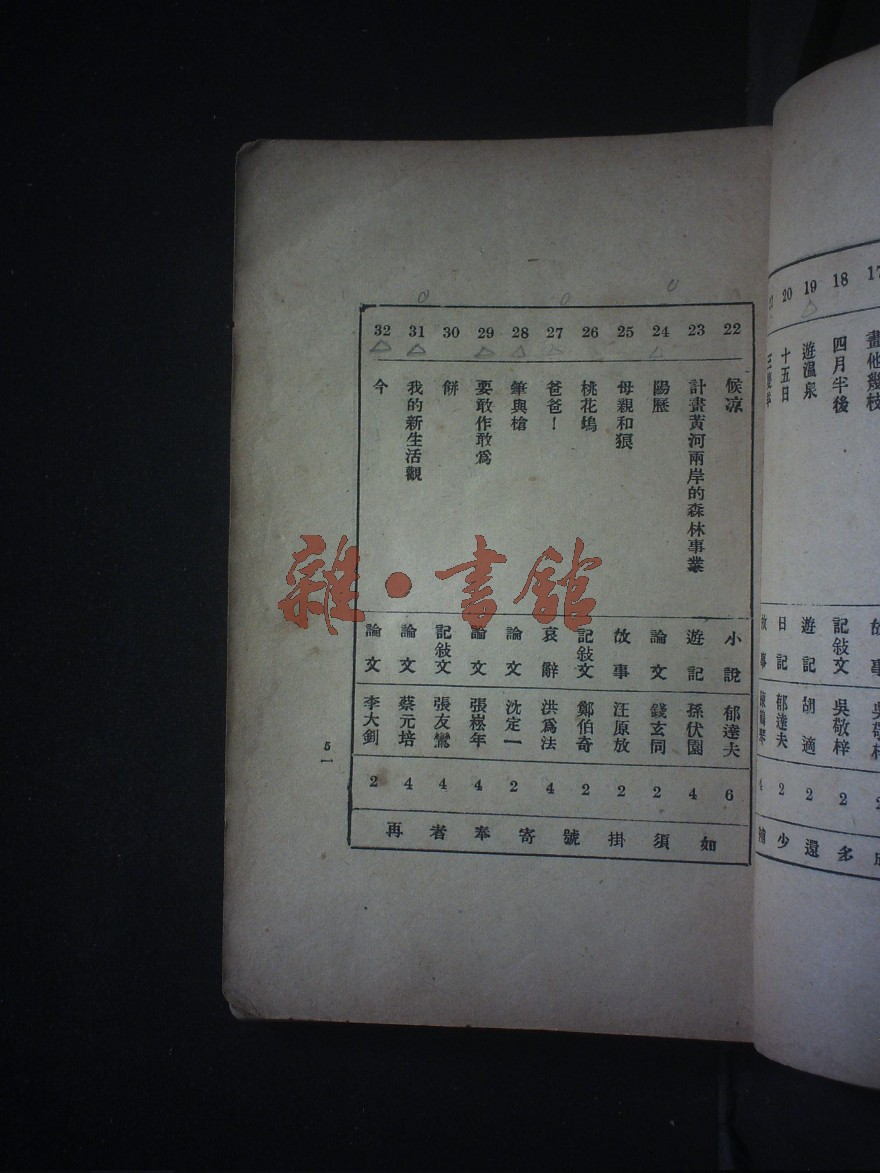 17
畫他幾枝
18
四月半後
記敍文
吳敬梓
2
多
19
遊溫泉
遊記
胡適
2
還
20
十五日
日記
郁達夫
2
少
4
22
候凉
小說
郁達夫
6
23
計畫黃河兩岸的森林事業
遊記
孫伏園
4
24
陽歷
論文
錢玄同
2
25
母親和狼
故事
汪原放
2
26
桃花塢
記敍文
鄭伯奇
2
27
爸爸！
哀辭
洪爲法
4
28
筆與槍
論文
沈定一
2
29
要敢作敢爲
論文
張崧年
4
30
餅
記敍文
張友鸞
4
31
我的新生活觀
論文
蔡元培
4
32
今
論文
李大釗
2
如須掛號寄奉者再
5一
雜·書館